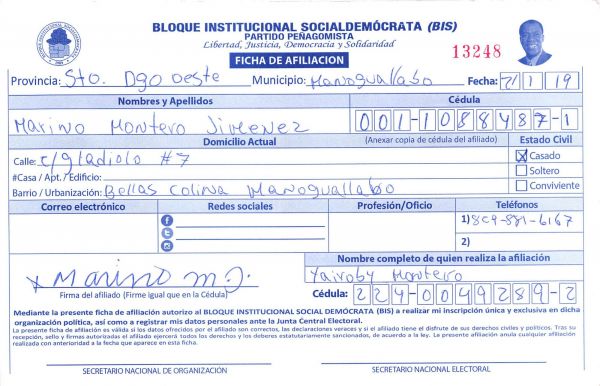 BLOQUE INSTITUCIONAL SOCIALDEMÓCRATA (BIS)
PARTIDO PEÑAGOMISTA
Libertad, Justicia, Democracia y Solidaridad
FICHA DE AFILIACION
13248
Provincia: Sto. Dgo oeste Municipio: Manoguallabo Fecha: 7/1/19
Nombres y Apellidos Cédula
Marino Montero Jimenez 001-1088487-1
Domicilio Actual (Anexar copia de cédula del afiliado) Estado Civil
Calle: c/gladiolo #7 X Casado
#Casa / Apt. / Edificio: Soltero
Barrio / Urbanización: Bellas Colina Manoguallabo Conviviente
Correo electrónico Redes sociales Profesión/Oficio Teléfonos
1) 809-881-6167
2)
Nombre completo de quien realiza la afiliación
x Marino m. J. Yairoby Montero
Firma del afiliado (Firme igual que en la Cédula) Cédula: 224-0049289-2
Mediante la presente ficha de afiliación autorizo al BLOQUE INSTITUCIONAL SOCIAL DEMÓCRATA (BIS) a realizar mi inscripción única y exclusiva en dicha
organización política, así como a registrar mis datos personales ante la Junta Central Electoral.
La presente ficha de afiliación es válida si los datos ofrecidos por el afiliado son correctos, las declaraciones veraces y si el afiliado tiene el disfrute de sus derechos civiles y políticos. Tras su
recepción, sello y firmas autorizadas el afiliado ejercerá todos los derechos y los deberes estatutariamente sancionados, de acuerdo a la ley. La presente afiliación anula cualquier afiliación
realizada con anterioridad a la fecha que aparece en esta ficha.
SECRETARIO NACIONAL DE ORGANIZACIÓN SECRETARIO NACIONAL ELECTORAL